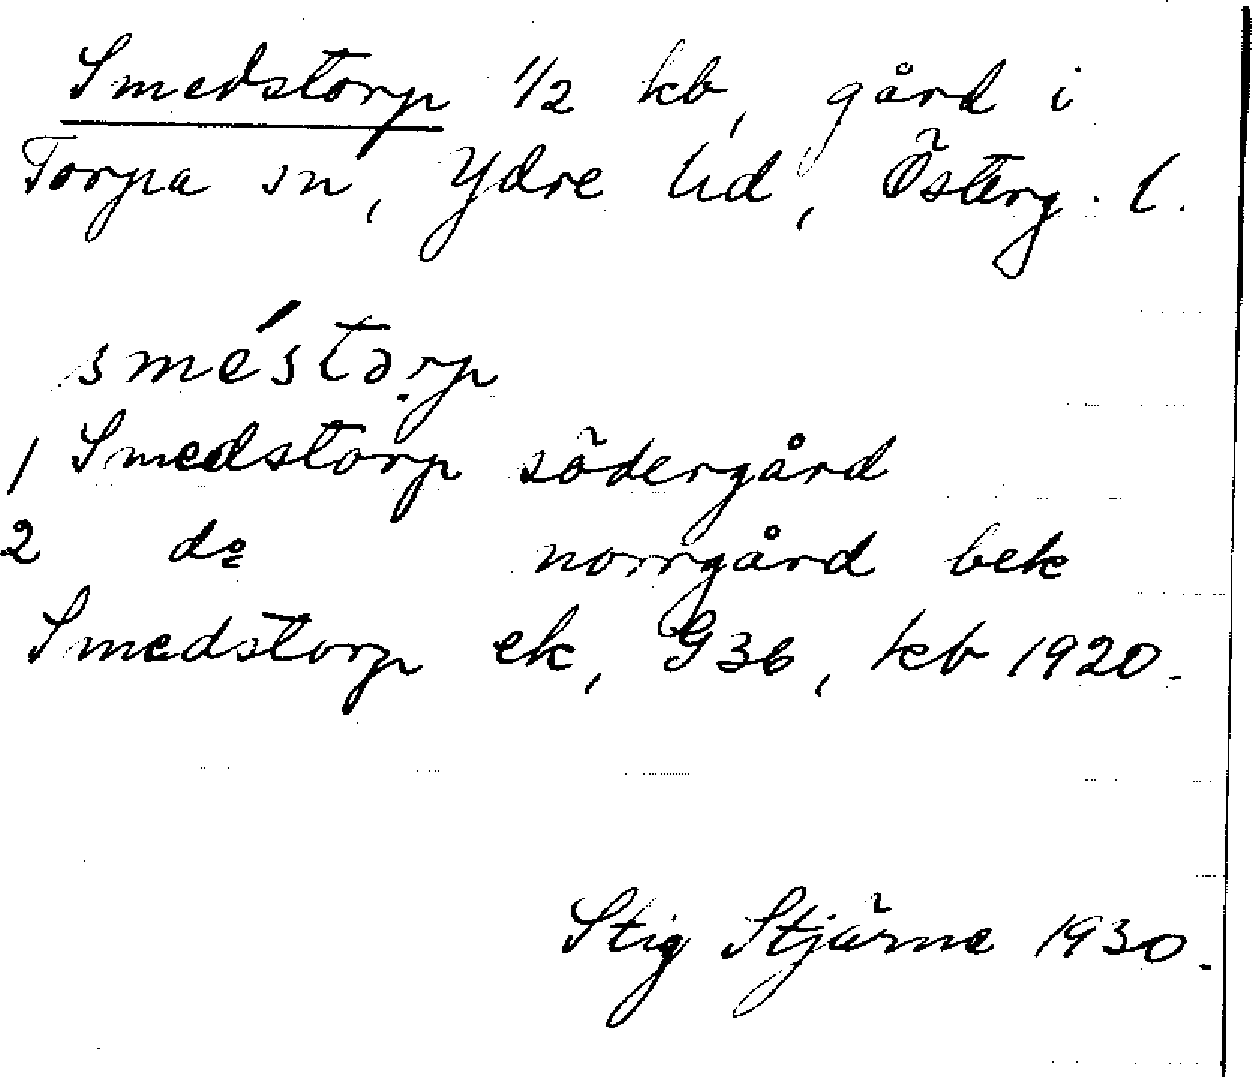 Smedstorp 1/2 kb, gård i
Torpa sn, Ydre hd, Österg. l.
sméstǝrp
1 Smedstorp södergård
2 do norrgård bek
Smedstorp ek, G36, kb 1920.
Stig Stjärne 1930.